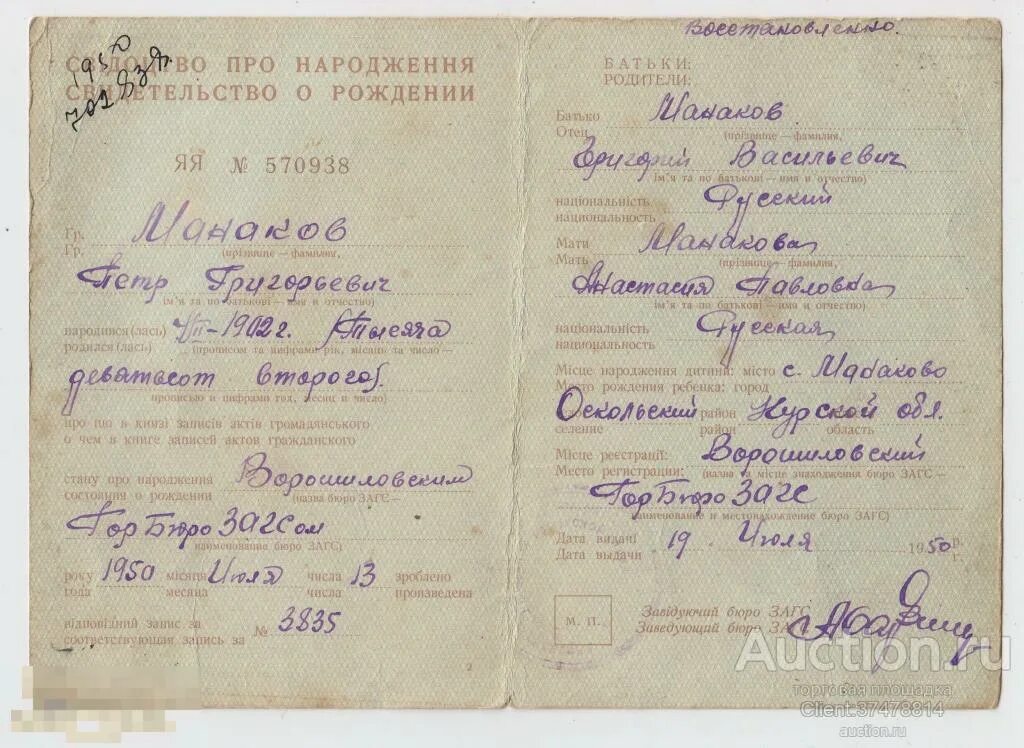 1950
702838
СВІДОЦТВО ПРО НАРОДЖЕННЯ
СВИДЕТЕЛЬСТВО О РОЖДЕНИИ
ЯЯ № 570938
Гр. Манаков
Гр. (прізвище — фамилия,
Петр Григорьевич
ім'я та по батькові — имя и отчество)
народився (лась) VII-1902 г. (Тысяча
родился (лась) (прописом та цифрами рік, місяць та число —
девятьсот второго).
прописью и цифрами год, месяц и число)
про що в книзі записів актів громадянського
о чем в книге записей актов гражданского
стану про народження Ворошиловским
состояния о рождении (назва бюро ЗАГС —
ГорБюро ЗАГСом
наименование бюро ЗАГС)
року 1950 місяця Июля числа 13 зроблено
года месяца числа произведена
відповідний запис за
соответствующая запись за № 3835
2
Восстановленно.
БАТЬКИ:
РОДИТЕЛИ:
Батько Манаков
Отец (прізвище — фамилия,
Григорий Васильевич
ім'я та по батькові — имя и отчество)
національність Русский
национальность
Мати Манакова
Мать (прізвище — фамилия,
Анастасия Павловна
ім'я та по батькові — имя и отчество)
національність Русская
национальность
Місце народження дитини: місто с. Манаково
Место рождения ребенка: город
Оскольский район Курской обл.
селение район область
Місце реєстрації: Ворошиловский
Место регистрации: (назва та місце знаходження бюро ЗАГС —
ГорБюро ЗАГС
наименование и местонахождение бюро ЗАГС)
Дата видачі 19 Июля 1950 р.
Дата выдачи г.
М. П.
Завідуючий бюро ЗАГС
Заведующий бюро ЗАГС
Auction.ru
торговая площадка
Client:37478814
auction.ru